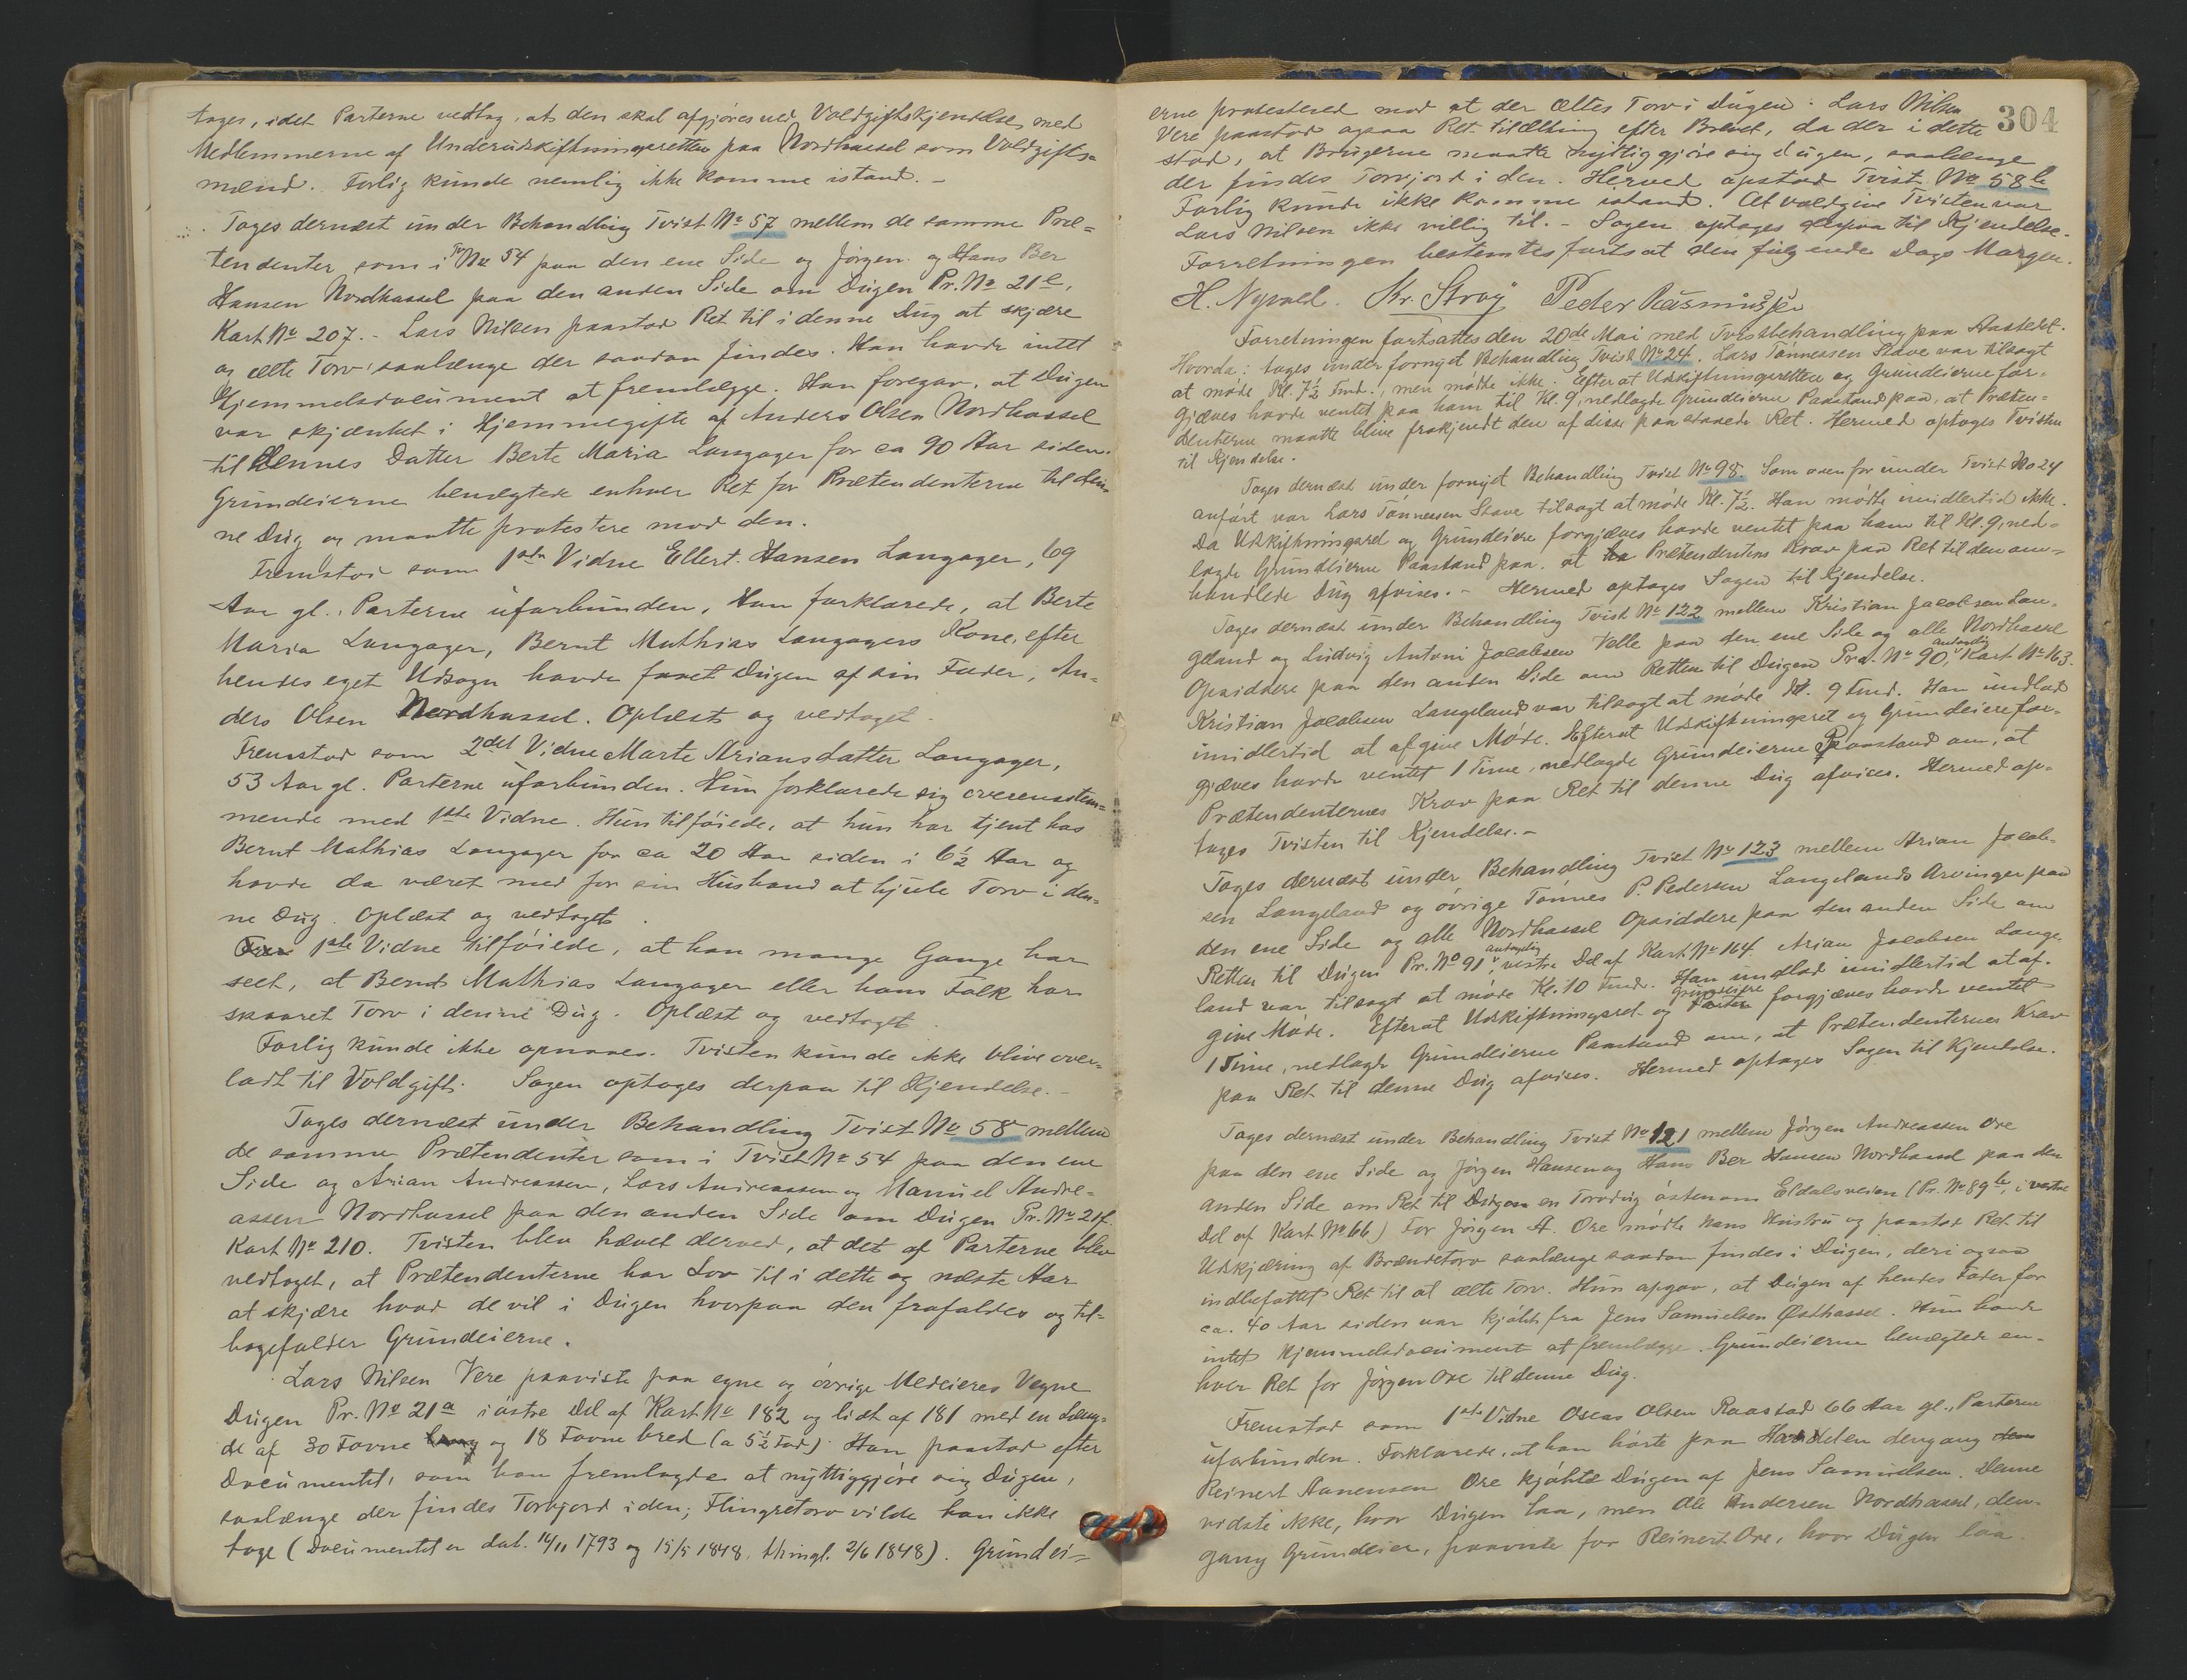 tages, idet Parterne vedtog, at den skal afgjøres ved Voldgiftskjendelse, med
Medlemmerne af Underudskiftningsretten paa Nordhassel som Voldgifts-
mænd. Forlig kunde nemlig ikke komme istand. -
Tages dernæst under Behandling Tvist No 57 mellem de samme Præ-
tendenter som i Tv No 54 paa den ene Side og Jørgen og Hans Ber
Hansen Nordhassel paa den anden Side om Dugen Pr. No 21e,
Kart No 207. - Lars Nilsen paastod Ret til i denne Dug at skjære
og ælte Torv, saalænge der saadan findes. Han havde intet
Hjemmelsdocument at fremlægge. Han foregav, at Dugen
var skjænket i Hjemmegifte af Anders Olsen Nordhassel
til Dennes Datter Berte Maria Langager for ca 90 Aar siden.
Grundeierne benægtede enhver Ret for Prætendenterne til den-
ne Dug og maatte protestere mod den.
Fremstod som 1ste Vidne Ellert Hansen Langager, 69
Aar gl., Parterne uforbunden. Han forklarede, at Berte
Maria Langager, Bernt Mathias Langagers Kone, efter
hendes eget Udsagn havde faaet Dugen af sin Fader, An-
ders Olsen Nordhassel. Oplæst og vedtaget.
Fremstod som 2det Vidne Marte Ariansdatter Langager,
53 Aar gl. Parterne uforbunden. Hun forklarede sig overensstem-
mende med 1ste Vidne. Hun tilføiede, at hun har tjent hos
Bernt Mathias Langager for ca 20 Aar siden i 6½ Aar og
havde da været med for sin Husbond at hjule Torv i den-
ne Dug. Oplæst og vedtaget.
1ste Vidne tilføiede, at han mange Gange har
seet, at Bernt Mathias Langager eller hans Folk har
skaaret Torv i denne Dug. Oplæst og vedtaget.
Forlig kunde ikke opnaaes. Tvisten kunde ikke blive over-
ladt til Voldgift. Sagen optages derpaa til Kjendelse. -
Tages dernæst under Behandling Tvist No 58 mellem
de samme Prætendenter som i Tvist No 54 paa den ene
Side og Arian Andreassen, Lars Andreassen og Manuel Andre-
assen Nordhassel paa den anden Side om Dugen Pr. No 21f.
Kart No 210. Tvisten blev hævet derved, at det af Parterne blev
vedtaget, at Prætendenterne har Lov til i dette og næste Aar
at skjære hvad de vil i Dugen hvorpaa den frafaldes og til-
bagefalder Grundeierne.
Lars Nilsen Vere paaviste paa egne og øvrige Medeieres Vegne
Dugen Pr. No 21a i østre Del af Kart No 182 og lidt af 181 med en Læng-
de af 30 Favne lang og 18 Favne bred (a 5½ Fod). Han paastod efter
Documentet, som han fremlagde at nyttiggjøre sig Dugen,
saalænge der findes Torvjord i den; Flingretorv vilde han ikke
tage (Documentet er dat. 14/11 1793 og 15/5 1848, thingl. 2/6 1848). Grundei-
304
erne protesterede mod at der æltes Torv i Dugen. Lars Nilsen
Vere paastod ogsaa Ret til ælting efter Brevet, da der i dette
stod, at Brugerne maatte nyttiggjøre sig dugen, saalænge
der findes Torvjord i den. Herved opstod Tvist No 58b
Forlig kunde ikke komme istand. At voldgive Tvisten var
Lars Nilsen ikke villig til. - Sagen optages derpaa til Kjendelse.
Forretningen bestemtes fortsat den følgende Dags Morgen.
H. Nyvold. Kr. Stray Peder Rasmussen
Forretningen fortsattes den 20de Mai med Tvistbehandling paa Aastedet.
Hvorda: tages under fornyet Behandling Tvist No 24. Lars Tønnessen Stave var tilsagt
at møde Kl. 7½ Fmd., men mødte ikke. Efterat Udskiftningsretten og Grundeierne for-
gjæves havde ventet paa ham til Kl. 9, nedlagde Grundeierne Paastand paa, at Præten-
denterne maatte blive frakjendt den af disse paastaaede Ret. Hermed optages Tvisten
til Kjendelse.
Tages dernæst under fornyet Behandling Tvist No 98. Som ovenfor under Tvist No 24
anført var Lars Tønnessen Stave tilsagt at møde Kl. 7½. Han mødte imidlertid ikke.
Da Udskiftningsret og Grundeiere forgjæves havde ventet paa ham til Kl. 9, ned-
lagde Grundeierne Paastand paa, at Prætendentens Krav paa Ret til den om-
handlede Dug afvises. - Hermed optages Sagen til Kjendelse.
Tages dernæst under Behandling Tvist No 122 mellem Kristian Jacobsen Lan-
geland og Ludvig Antoni Jacobsen Velle paa den ene Side og alle Nordhassel
Opsiddere paa den anden Side om Retten til Dugen Præ. No 90, antagelig Kart No 163.
Kristian Jacobsen Langeland var tilsagt at møde Kl. 9 Fmd. Han undlod
imidlertid at afgive Møde. Efterat Udskiftningsret og Grundeiere for-
gjæves havde ventet 1 Time, nedlagde Grundeierne Paastand om, at
Prætendenternes Krav paa Ret til denne Dug afvises. Hermed op-
tages Tvisten til Kjendelse. -
Tages dernæst under Behandling Tvist No 123 mellem Arian Jacob-
sen Langeland og øvrige Tønnes P. Pedersen Langelands Arvinger paa
den ene Side og alle Nordhassel Opsiddere paa den anden Side om
Retten til Dugen Pr. No 91, antagelig vestre Del af Kart No 164. Arian Jacobsen Lange-
land var tilsagt at møde Kl. 10 Fmd. Han undlod imidlertid at af-
give Møde. Efterat Udskiftningsret og Grundeiere forgjæves havde ventet
1 Time, nedlagde Grundeierne Paastand om, at Prætendenternes Krav
paa Ret til denne Dug afvises. Hermed optages Sagen til Kjendelse.
Tages dernæst under Behandling Tvist No 121 mellem Jørgen Andreassen Ore
paa den ene Side og Jørgen Hansen og Hans Ber Hansen Nordhassel paa den
anden Side om Ret til en Torvdug østenom Eldalsveien (Pr. No 89b, i vestre
Del af Kart No 66) For Jørgen A. Ore mødte hans Hustru og paastod Ret til
Udskjæring af Brændetorv saalænge saadan findes i Dugen, deri ogsaa
indbefattet Ret til at ælte Torv. Hun opgav, at Dugen af hendes Fader for
ca. 40 Aar siden var kjøbt fra Jens Samuelsen Østhassel. Hun havde
intet Hjemmelsdocument at fremlægge. Grundeierne benægtede en-
hver Ret for Jørgen Ore til denne Dug.
Fremstod som 1ste Vidne Oseas Olsen Raastad 66 Aar gl., Parterne
uforbunden. Forklarede, at han hørte paa Handelen dengang
Reinert Aanensen Ore kjøbte Dugen af Jens Samuelsen. Denne
vidste ikke, hvor Dugen laa, men Ole Andersen Nordhassel, den-
gang Grundeier, paaviste for Reinert Ore, hvor Dugen laa.